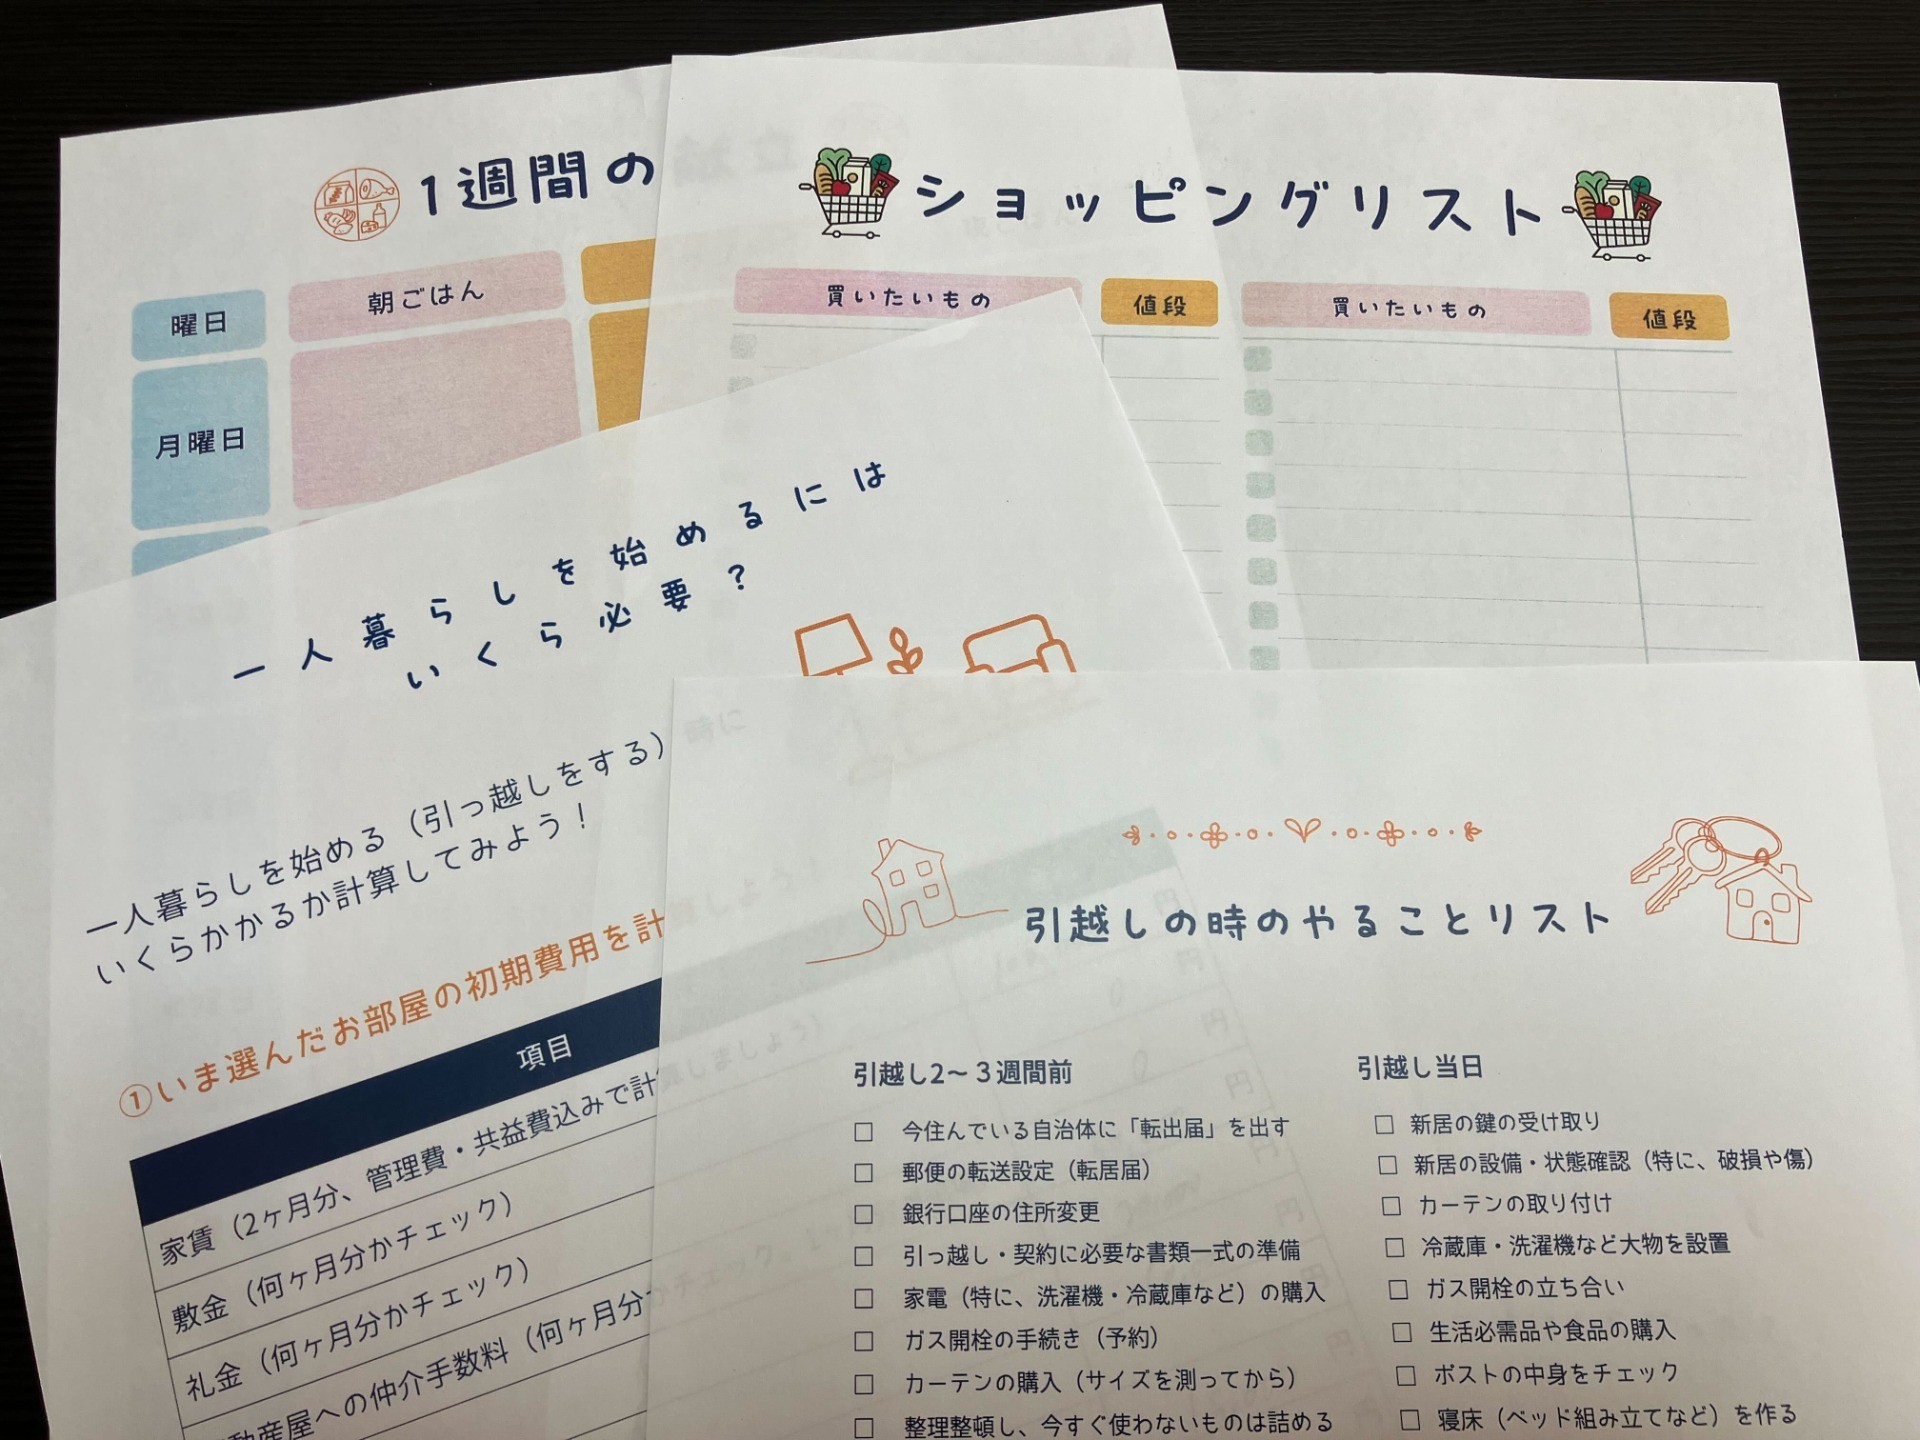 1週間の
曜日
朝ごはん
月曜日
ショッピングリスト
買いたいもの
値段
買いたいもの
値段
一人暮らしを始めるには
いくら必要?
一人暮らしを始める(引っ越しをする)時に
いくらかかるか計算してみよう!
①いま選んだお部屋の初期費用を計
項目
家賃(2ヶ月分、管理費・共益費込みで計
敷金(何ヶ月分かチェック)
礼金(何ヶ月分かチェック)
動産屋への仲介手数料(何ヶ月分
引越しの時のやることリスト
引越し2〜3週間前
□ 今住んでいる自治体に「転出届」を出す
□ 郵便の転送設定(転居届)
□ 銀行口座の住所変更
□ 引っ越し・契約に必要な書類一式の準備
□ 家電(特に、洗濯機・冷蔵庫など)の購入
□ ガス開栓の手続き(予約)
□ カーテンの購入(サイズを測ってから)
□ 整理整頓し、今すぐ使わないものは詰める
引越し当日
□ 新居の鍵の受け取り
□ 新居の設備・状態確認(特に、破損や傷)
□ カーテンの取り付け
□ 冷蔵庫・洗濯機など大物を設置
□ ガス開栓の立ち合い
□ 生活必需品や食品の購入
□ ポストの中身をチェック
□ 寝床(ベッド組み立てなど)を作る